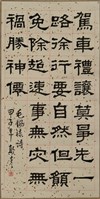 駕車禮讓莫爭先一
路徐行要自然但願
免除超速事無災無
禍勝神僊
甲子年